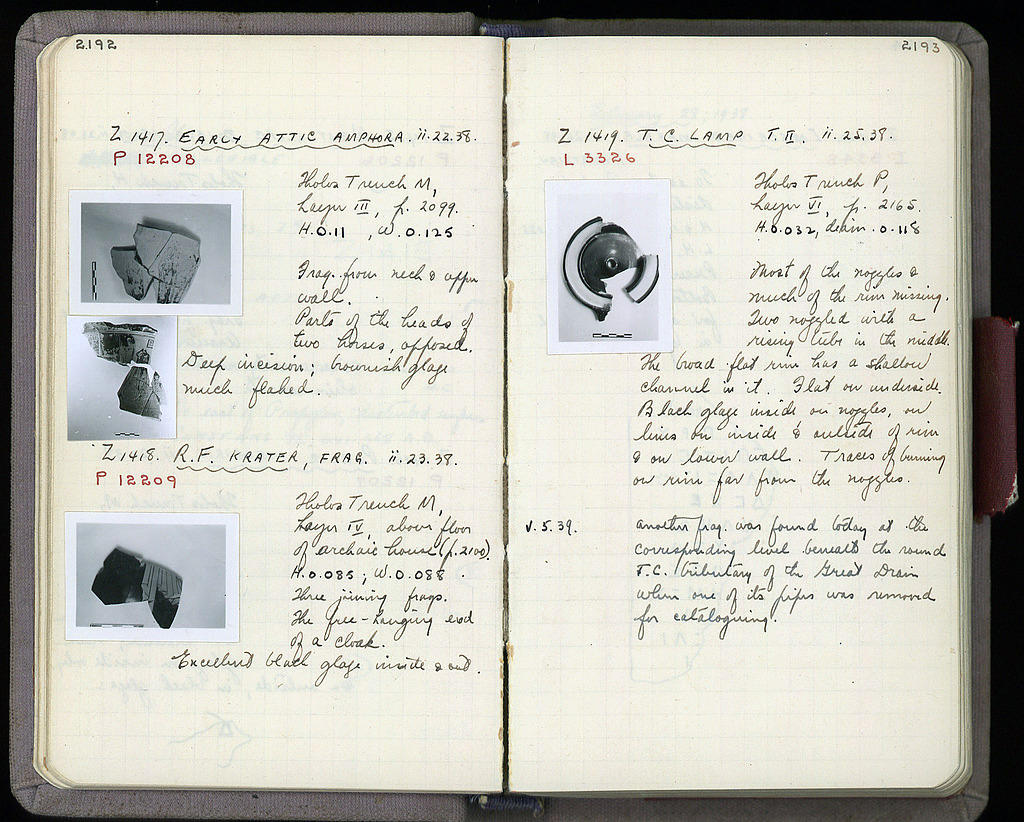 2192
Z 1417. EARLY ATTIC AMPHORA. ii.22.38.
P 12208
Tholos Trench M,
Layer III, p. 2099.
H. 0.11 , W. 0.125
Frag. from neck & upper
wall.
Parts of the heads of
two horses, opposed.
Deep incision; brownish glaze
much flaked.
Z 1418. R.F. KRATER, FRAG. ii.23.38.
P 12209
Tholos Trench M,
Layer IV, above floor
of archaic house (p. 2100)
H. 0.085 ; W. 0.088 .
Three joining frags.
The free-hanging end
of a cloak.
Excellent black glaze inside & out.
2193
Z 1419. T.C. LAMP T. II. ii.25.38.
L 3326
Tholos Trench P,
Layer VI, p. 2165.
H. 0.032, diam. 0.118
Most of the nozzles &
much of the rim missing.
Two nozzled with a
rising tube in the middle.
The broad flat rim has a shallow
channel in it. Flat on underside.
Black glaze inside on nozzles, on
lines on inside & outside of rim
& on lower wall. Traces of burning
on rim far from the nozzles.
V.5.39. another frag. was found today at the
corresponding level beneath the round
T.C. tributary of the Great Drain
when one of its pipes was removed
for cataloguing.